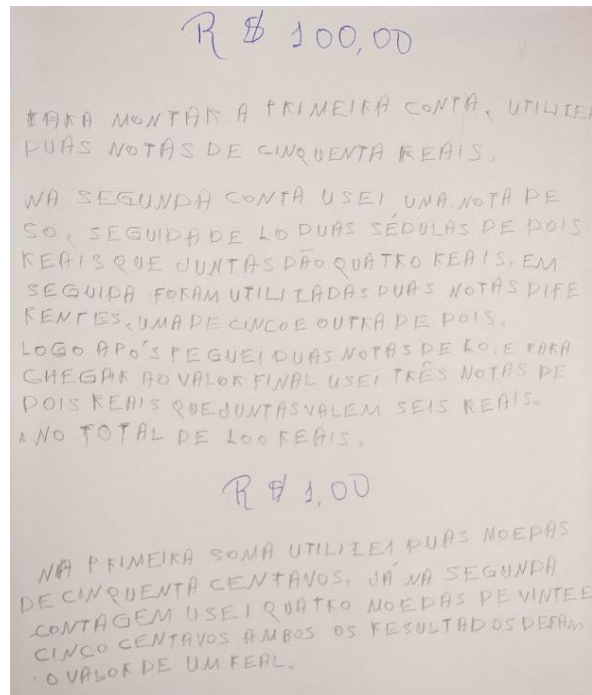 R$ 100,00
PARA MONTAR A PRIMEIRA CONTA, UTILIZEI
DUAS NOTAS DE CINQUENTA REAIS.
NA SEGUNDA CONTA USEI UMA NOTA DE
50, SEGUIDA DE 10 DUAS SÉDULAS DE DOIS
REAIS QUE JUNTAS DÃO QUATRO REAIS, EM
SEGUIDA FORAM UTILIZADAS DUAS NOTAS DIFE
RENTES, UMA DE CINCO E OUTRA DE DOIS.
LOGO APÓS PEGUEI DUAS NOTAS DE 10. E PARA
CHEGAR AO VALOR FINAL USEI TRÊS NOTAS DE
DOIS REAIS QUE JUNTAS VALEM SEIS REAIS.
NO TOTAL DE 100 REAIS.
R$ 1,00
NA PRIMEIRA SOMA UTILIZEI DUAS MOEDAS
DE CINQUENTA CENTAVOS. JÁ NA SEGUNDA
CONTAGEM USEI QUATRO MOEDAS DE VINTE E
CINCO CENTAVOS AMBOS OS RESULTADOS DERAM
O VALOR DE UM REAL.